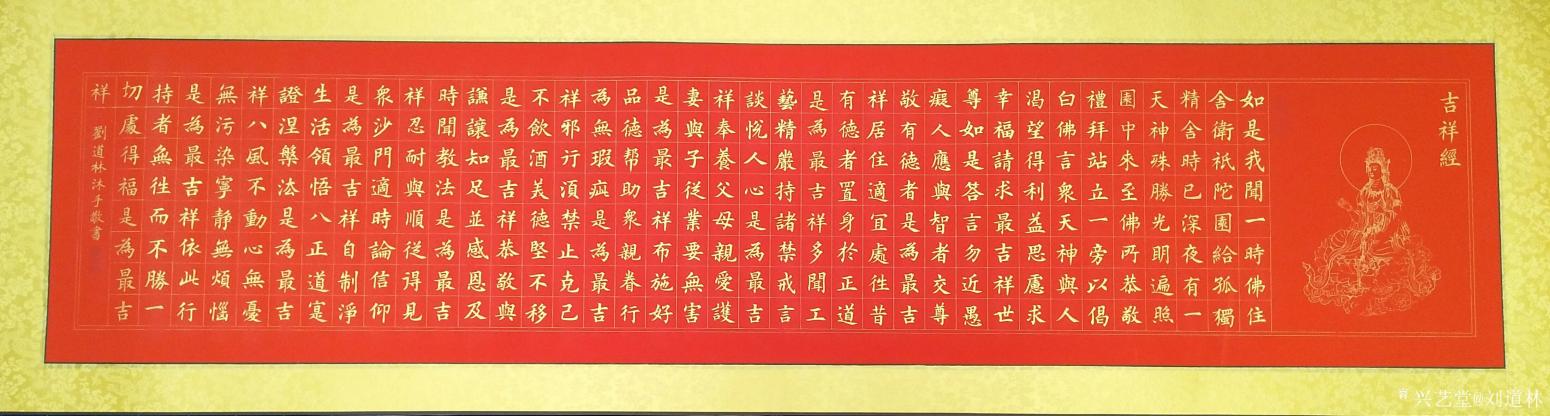 吉祥經
如是我聞一時佛住
舍衛祇陀園給孤獨
精舍時已深夜有一
天神殊勝光明遍照
園中來至佛所恭敬
禮拜站立一旁以偈
白佛言衆天神與人
渴望得利益思慮求
幸福請求最吉祥世
尊如是答言勿近愚
癡人應與智者交尊
敬有德者是為最吉
祥居住適宜處徃昔
有德者置身於正道
是為最吉祥多聞工
藝精嚴持諸禁戒言
談悅人心是為最吉
祥奉養父母親愛護
妻與子從業要無害
是為最吉祥布施好
品德帮助衆親眷行
為無瑕疵是為最吉
祥邪行須禁止克己
不飲酒美德堅不移
是為最吉祥恭敬與
謙讓知足並感恩及
時聞教法是為最吉
祥忍耐與順從得見
衆沙門適時論信仰
是為最吉祥自制淨
生活領悟八正道寔
證涅槃法是為最吉
祥八風不動心無憂
無污染寧靜無煩惱
是為最吉祥依此行
持者無徃而不勝一
切處得福是為最吉
祥
劉道林沐手敬書
兴艺堂@刘道林